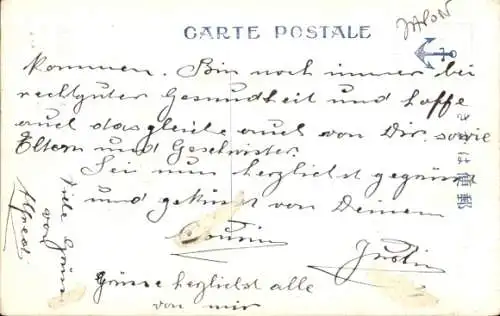 CARTE POSTALE
JAPON
kommen. Bin noch immer bei
rechtguter Gesundheit und hoffe
auch dasgleiche auch von Dir, sowie
Eltern und Geschwister.
Sei nun herzlichst gegrüsst
und geküsst von Deinem
Cousin
Grüsse herzlichst alle
von mir
Viele Grüsse
von
Alfred
きがは便郵